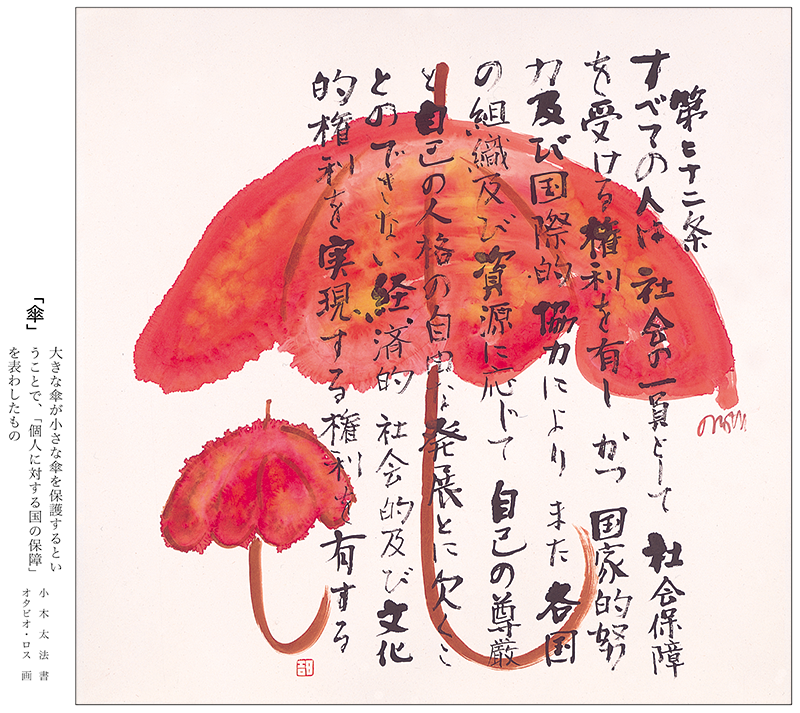 第二十二条
すべての人は 社会の一員として 社会保障
を受ける権利を有し かつ 国家的努
力及び国際的 協力により また 各国
の組織及び資源に応じて 自己の尊厳
と自己の人格の自由な発展とに欠くこ
とのできない経済的 社会的及び文化
的権利を実現する権利を有する
「傘」
大きな傘が小さな傘を保護するとい
うことで、「個人に対する国の保障」
を表わしたもの
小木太法 書
オタビオ・ロス 画